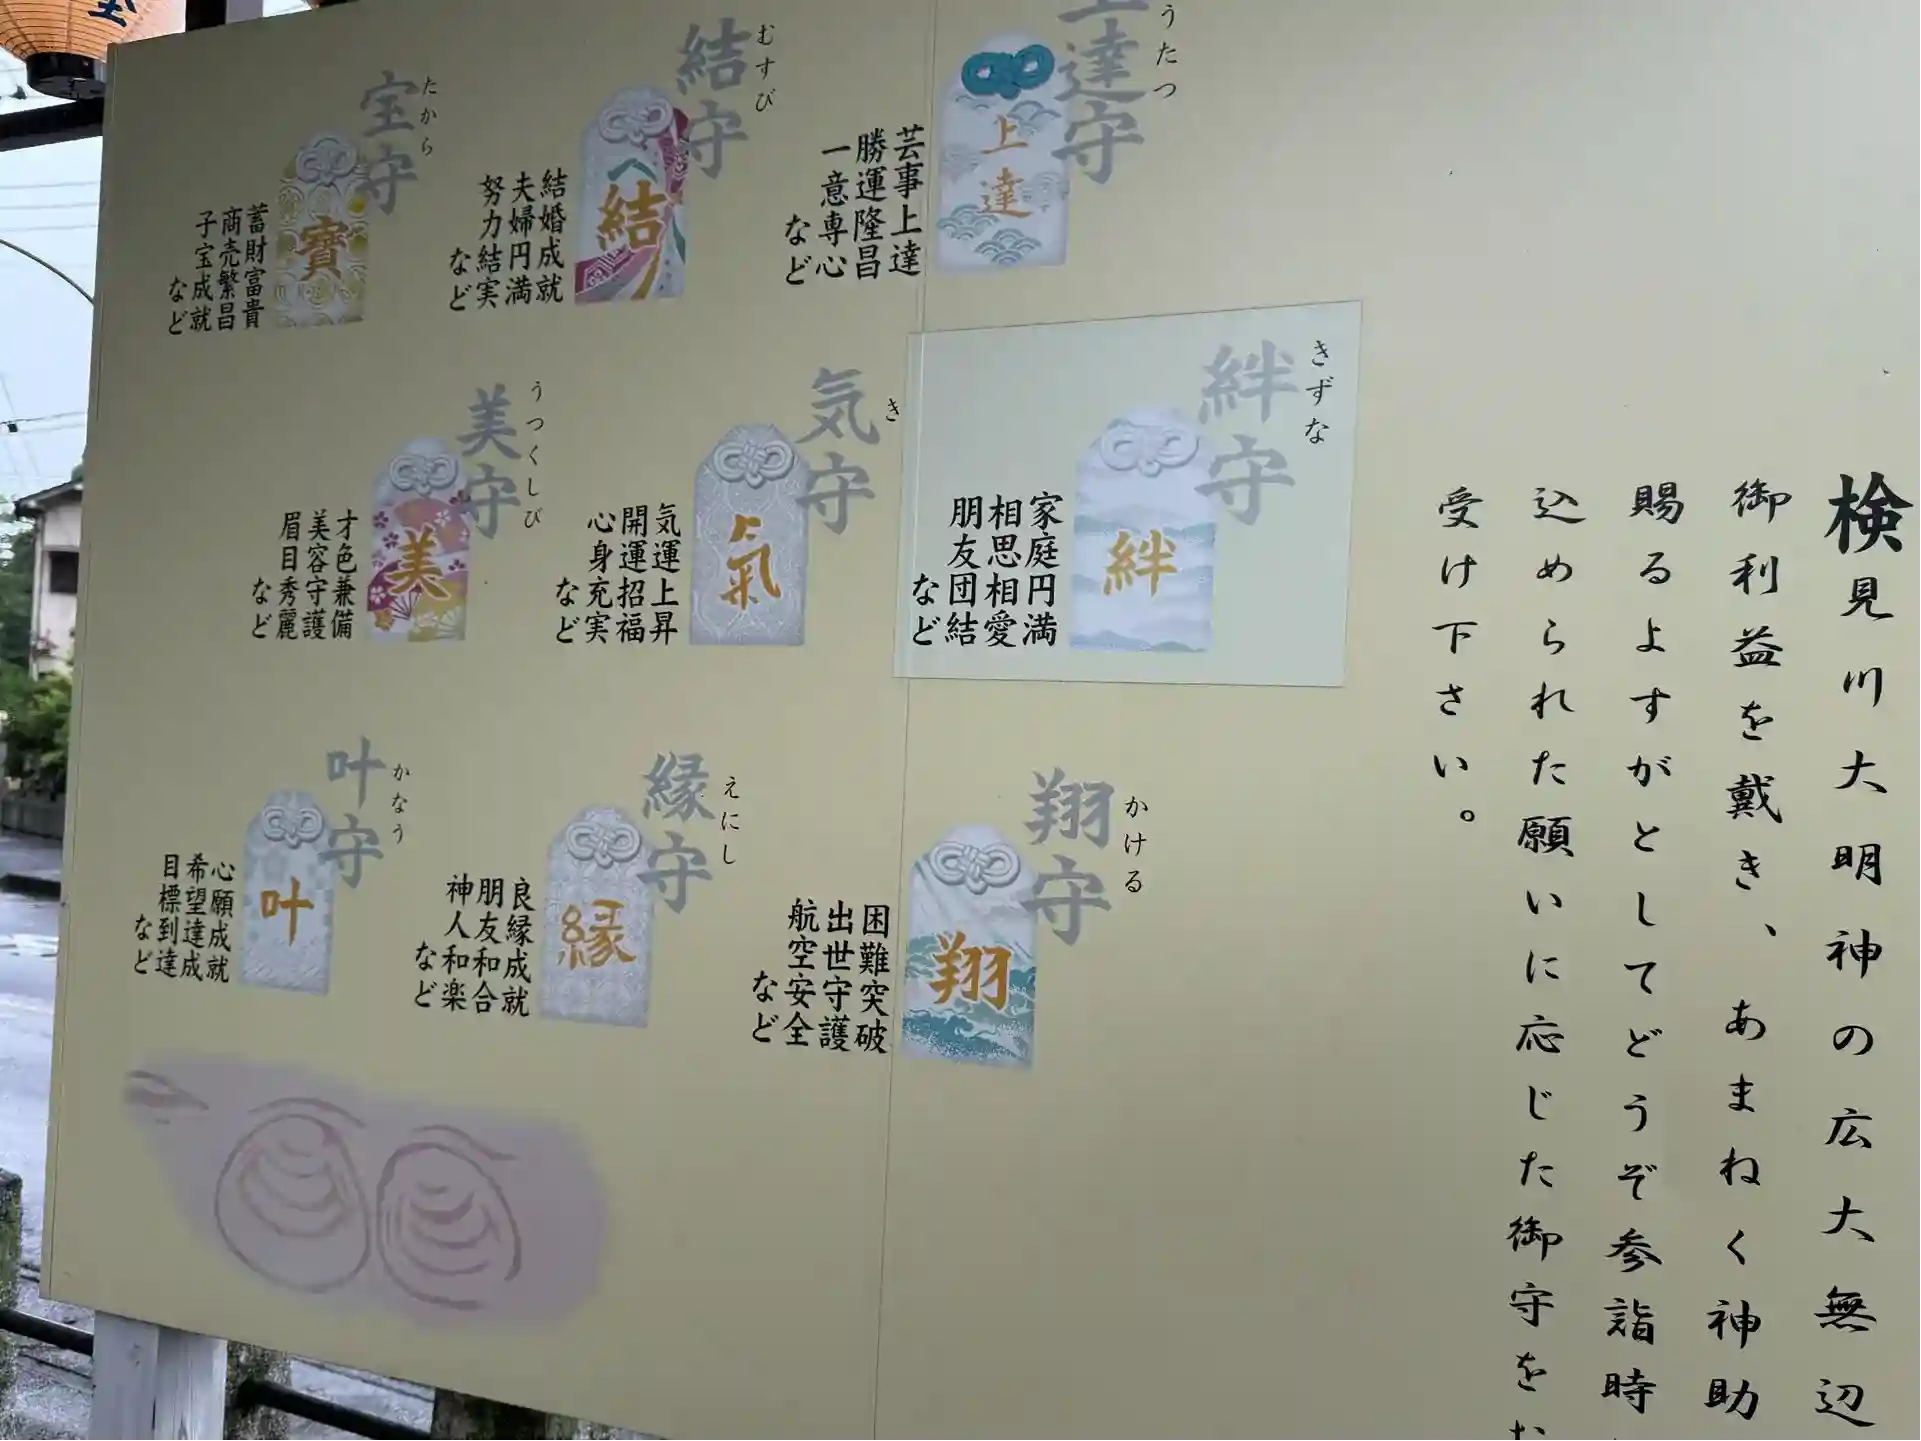 検見川大明神の広大無辺
御利益を戴き、あまねく神助
賜るよすがとしてどうぞ参詣時
込められた願いに応じた御守をお
受け下さい。
うたつ
上達守
上達
芸事上達
勝運隆昌
一意専心
など
むすび
結守
結
結婚成就
夫婦円満
努力結実
など
たから
宝守
寶
蓄財富貴
商売繁昌
子宝成就
など
きずな
絆守
絆
家庭円満
相思相愛
朋友団結
など
き
気守
氣
気運上昇
開運招福
心身充実
など
うつくしび
美守
美
才色兼備
美容守護
眉目秀麗
など
かける
翔守
翔
困難突破
出世守護
航空安全
など
えにし
縁守
縁
良縁成就
朋友和合
神人和楽
など
かなう
叶守
叶
心願成就
希望達成
目標到達
など